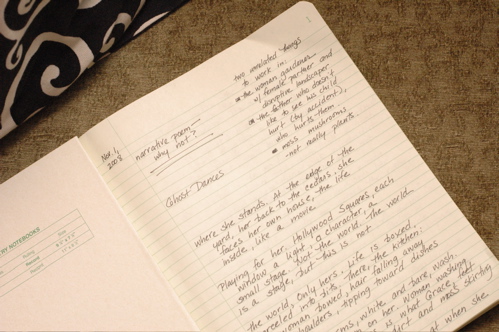 two unrelated things
to work in:
the woman gardener
w/ female partner and
disruptive landscaper
the father who doesn't
like to see his child
hurt (by accident),
who hurts them
moss, mushrooms
-not really plants.
Nov. 1,
2008
narrative poem,
why not?
Ghost Dances
where she stands. At the edge of the
yard, her back to the cedars she
faces her own house, the life
inside, like a movie.
Playing for her. Hollywood Squares, each
window a light, a character, a
small stage. Not the world, the world
is a stage, but this is not
the world, only hers. Life is boxed,
into bits, there the kitchen:
woman bowed, hair falling away
shoulders, tipping toward dishes
arms, white and bare, wash.
her woman washing,
is what Grace
and moss
when she
RY NOTEBOOKS